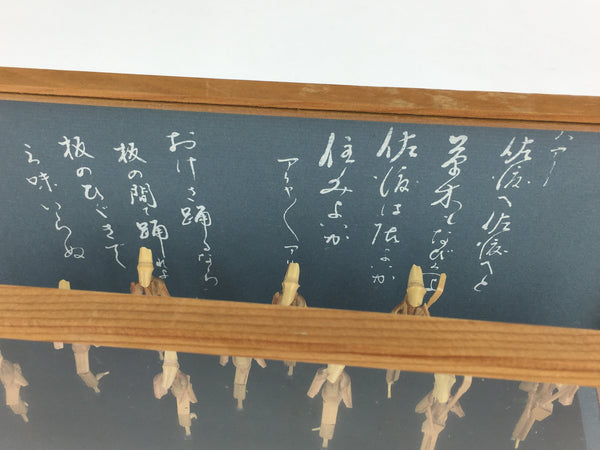 ハアー
佐渡へ佐渡へと
草木もなびくよ
佐渡は居よいか
住みよいか
アリャ〱アリャ
おけさ踊るなら
板の間で踊れよ
板のひゞきで
三味いらぬ